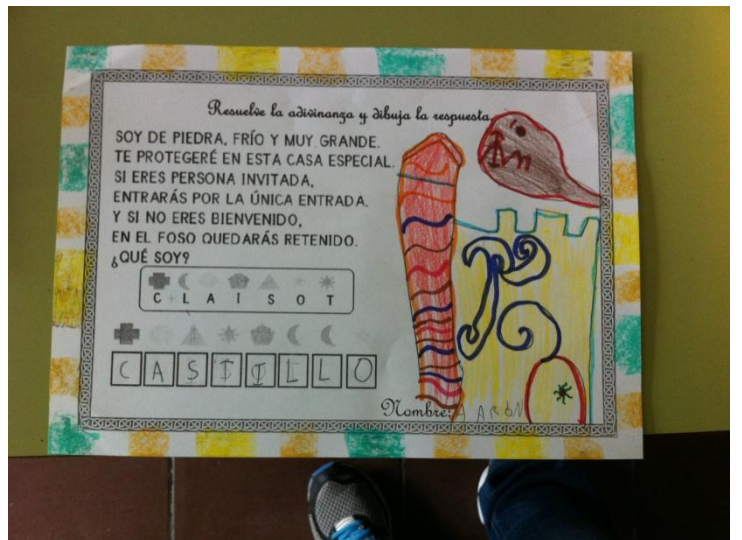 Resuelve la adivinanza y dibuja la respuesta
SOY DE PIEDRA, FRÍO Y MUY GRANDE.
TE PROTEGERÉ EN ESTA CASA ESPECIAL.
SI ERES PERSONA INVITADA,
ENTRARÁS POR LA ÚNICA ENTRADA.
Y SI NO ERES BIENVENIDO,
EN EL FOSO QUEDARÁS RETENIDO.
¿QUÉ SOY?
C L A I S O T
C A S T I L L O
Nombre: AARON